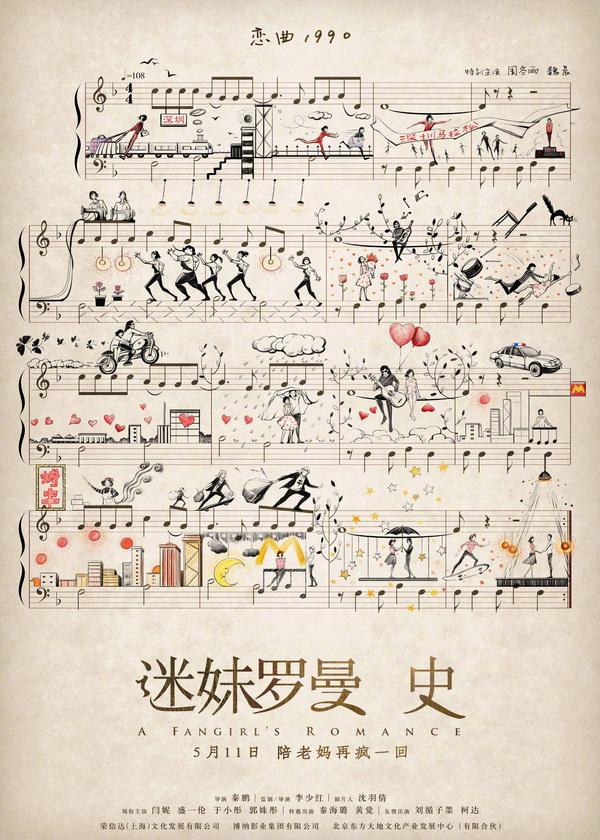 恋曲1990
♩=108
特别主演 周冬雨 魏晨
深圳
深圳马拉松
烤串
迷妹罗曼 史
A FANGIRL'S ROMANCE
5月11日 陪老妈再疯一回
导演 秦鹏 | 监制/导演 李少红 | 制片人 沈羽倩
领衔主演 闫妮 盛一伦 于小彤 郭姝彤 | 特邀出演 秦海璐 黄觉 | 友情出演 刘循子墨 柯达
荣信达(上海)文化发展有限公司 博纳影业集团有限公司 北京东方大地文化产业发展中心(有限合伙)